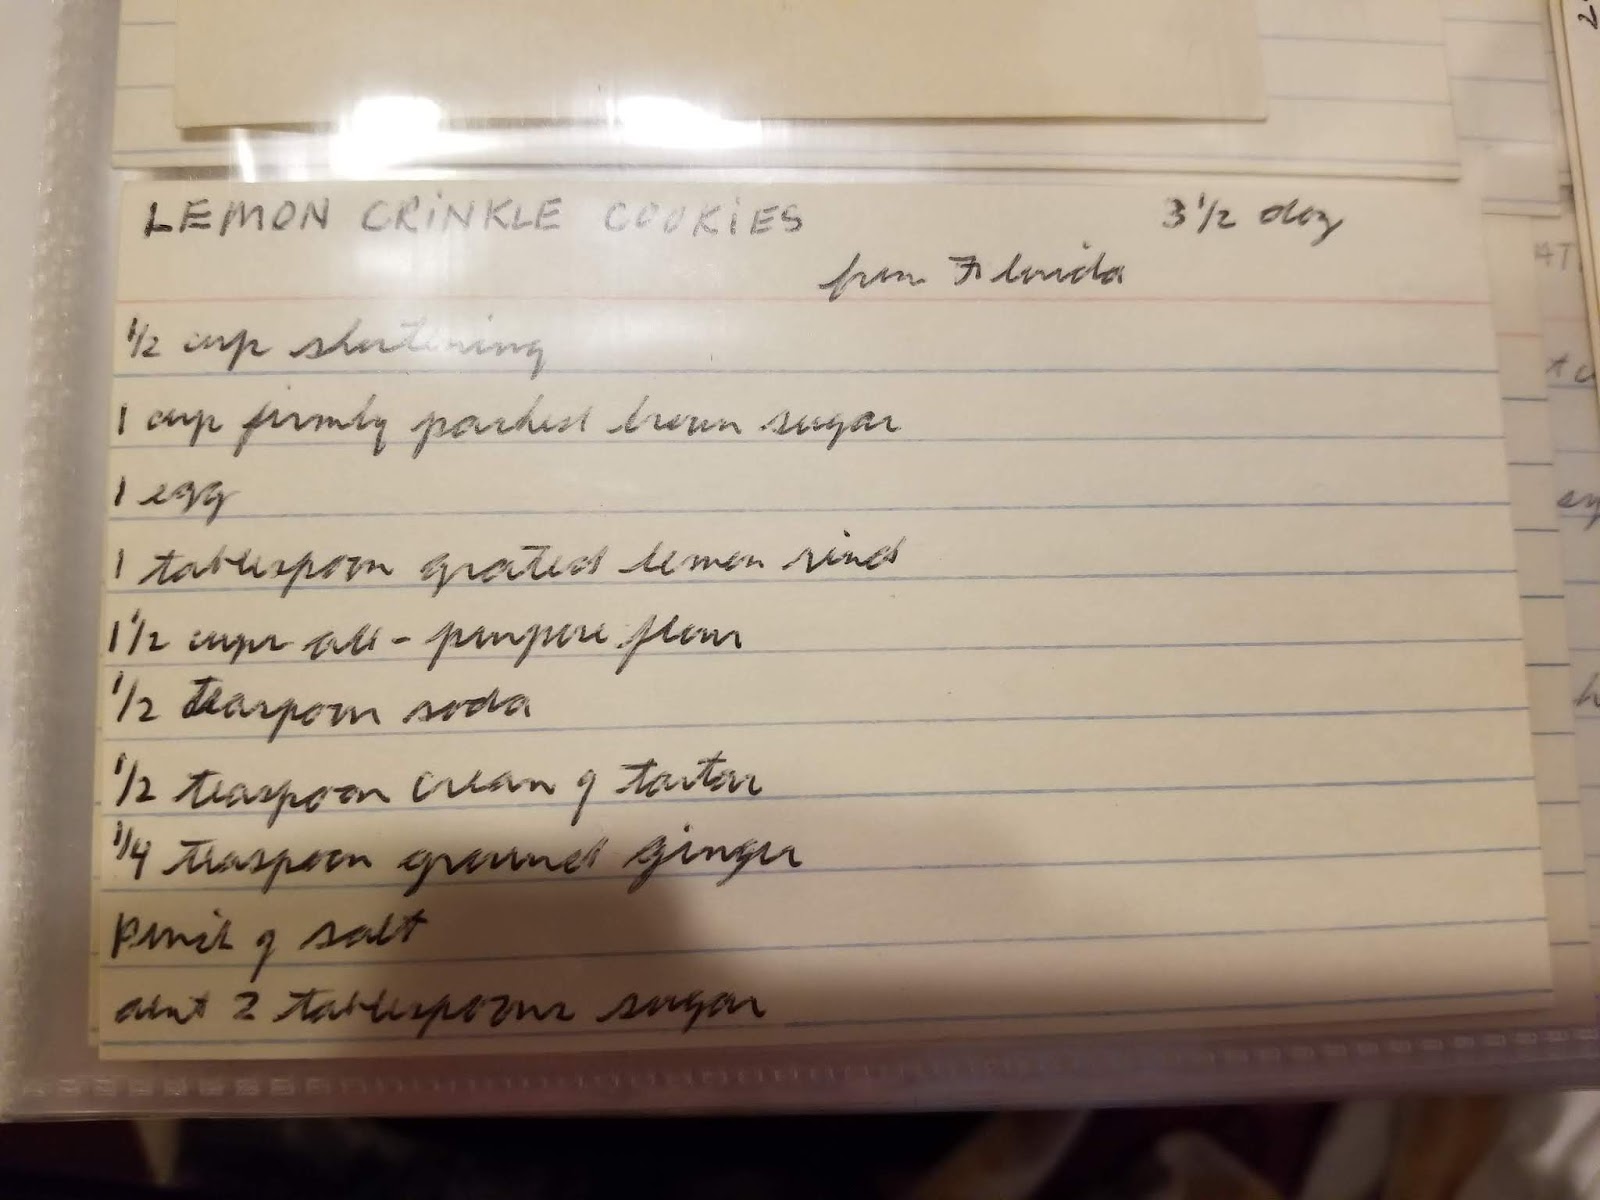 LEMON CRINKLE COOKIES 3 1/2 doz
from Florida
1/2 cup shortening
1 cup firmly packed brown sugar
1 egg
1 tablespoon grated lemon rind
1 1/2 cups all-purpose flour
1/2 teaspoon soda
1/2 teaspoon cream of tartar
1/4 teaspoon ground ginger
pinch of salt
about 2 tablespoons sugar